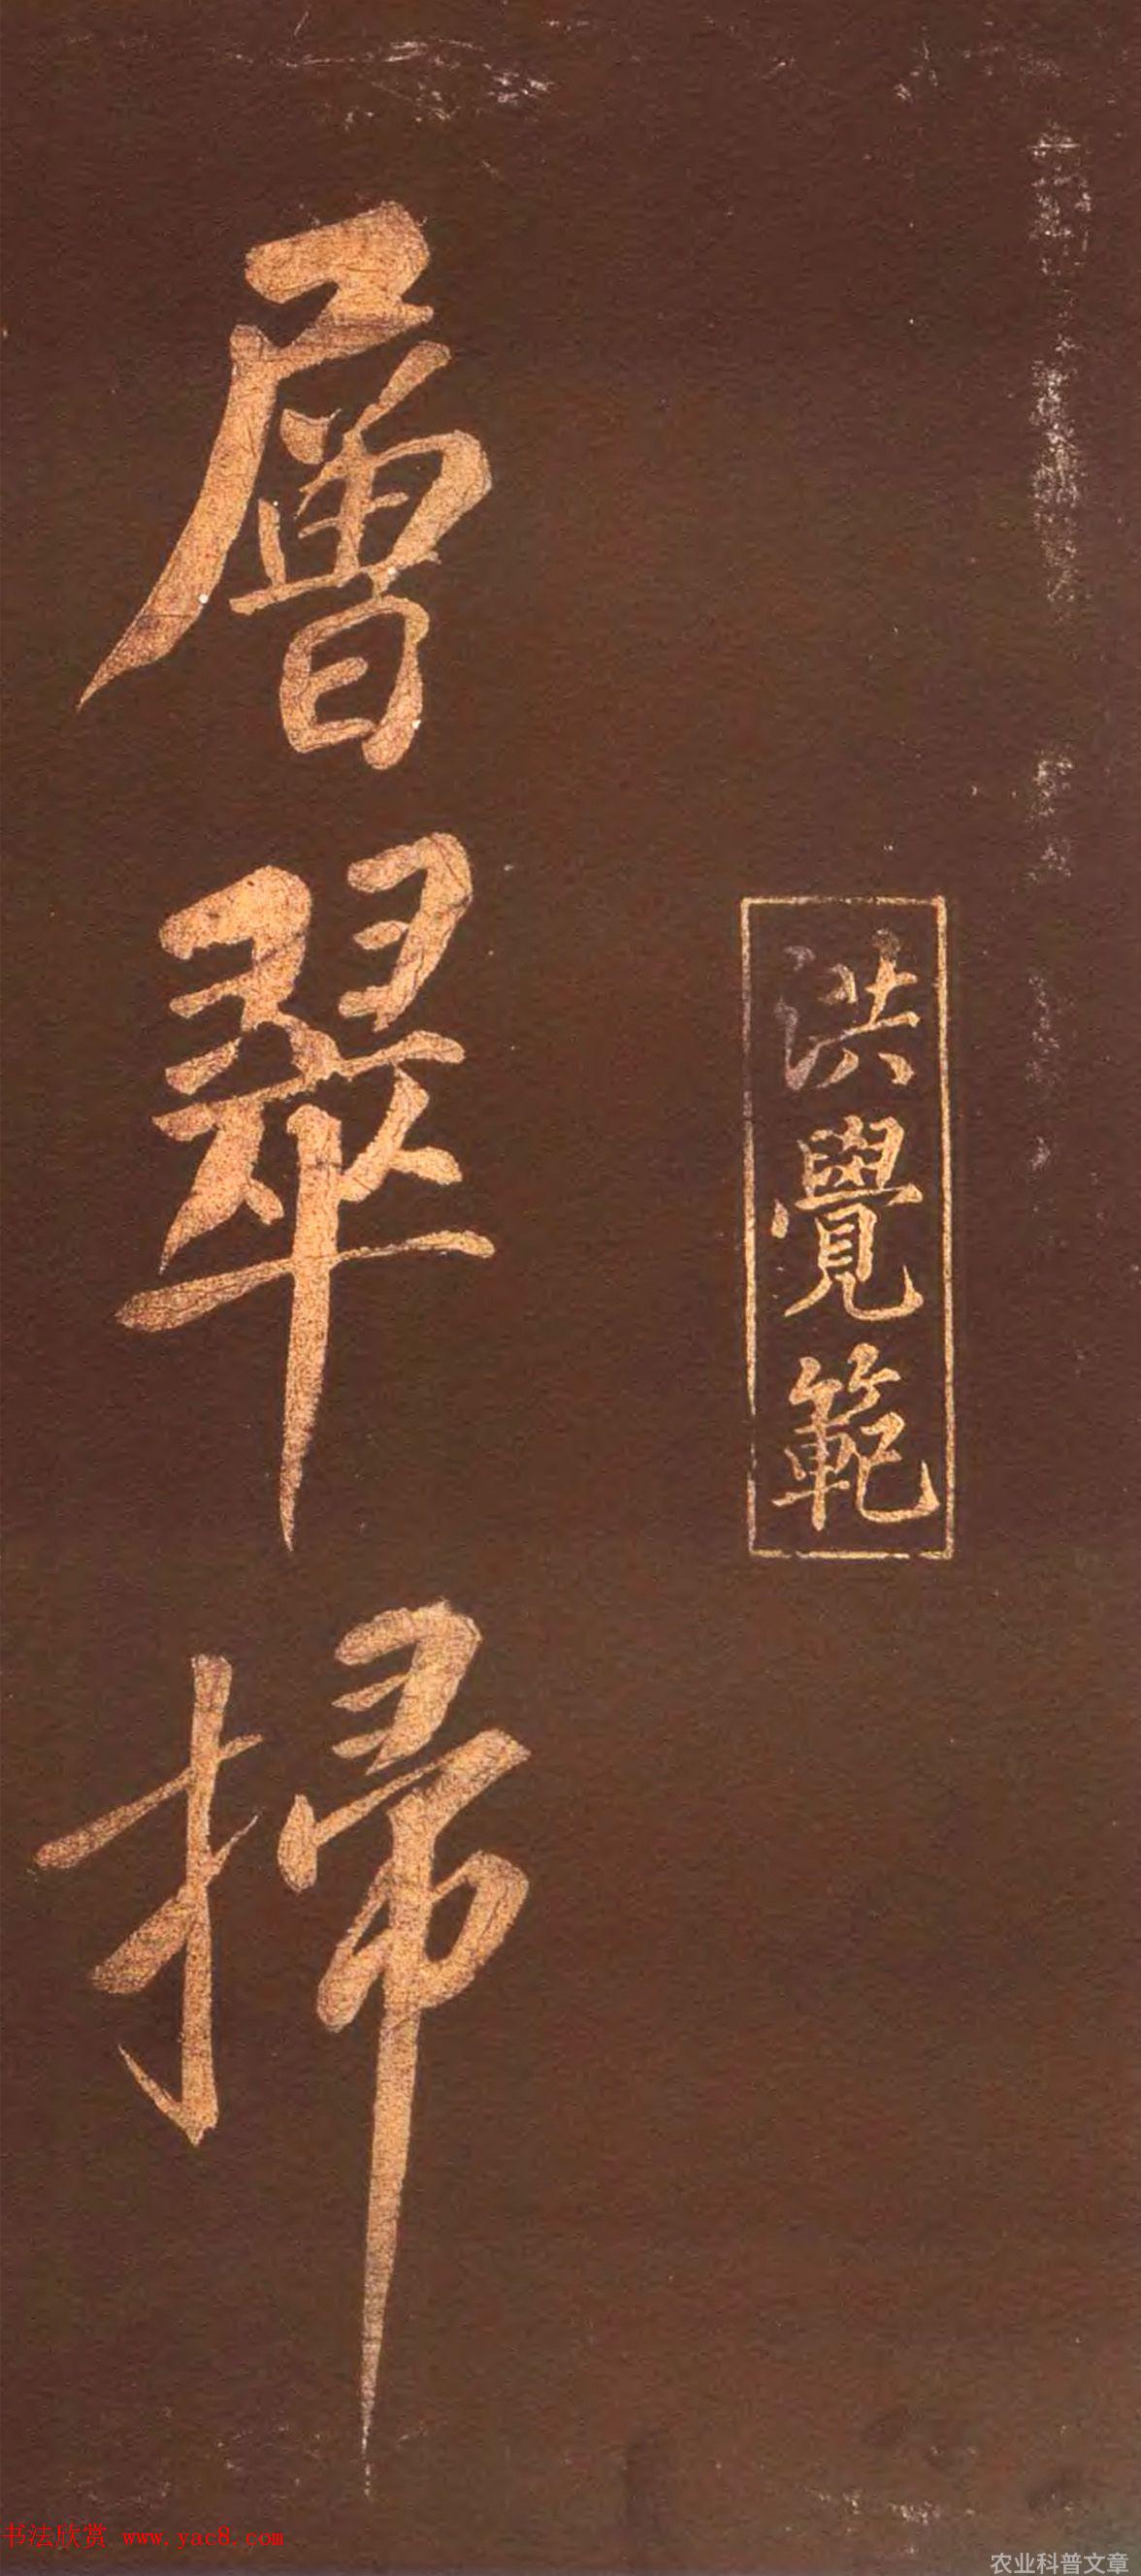 洪覺範
層翠掃
书法欣赏 www.yac8.com
农业科普文章